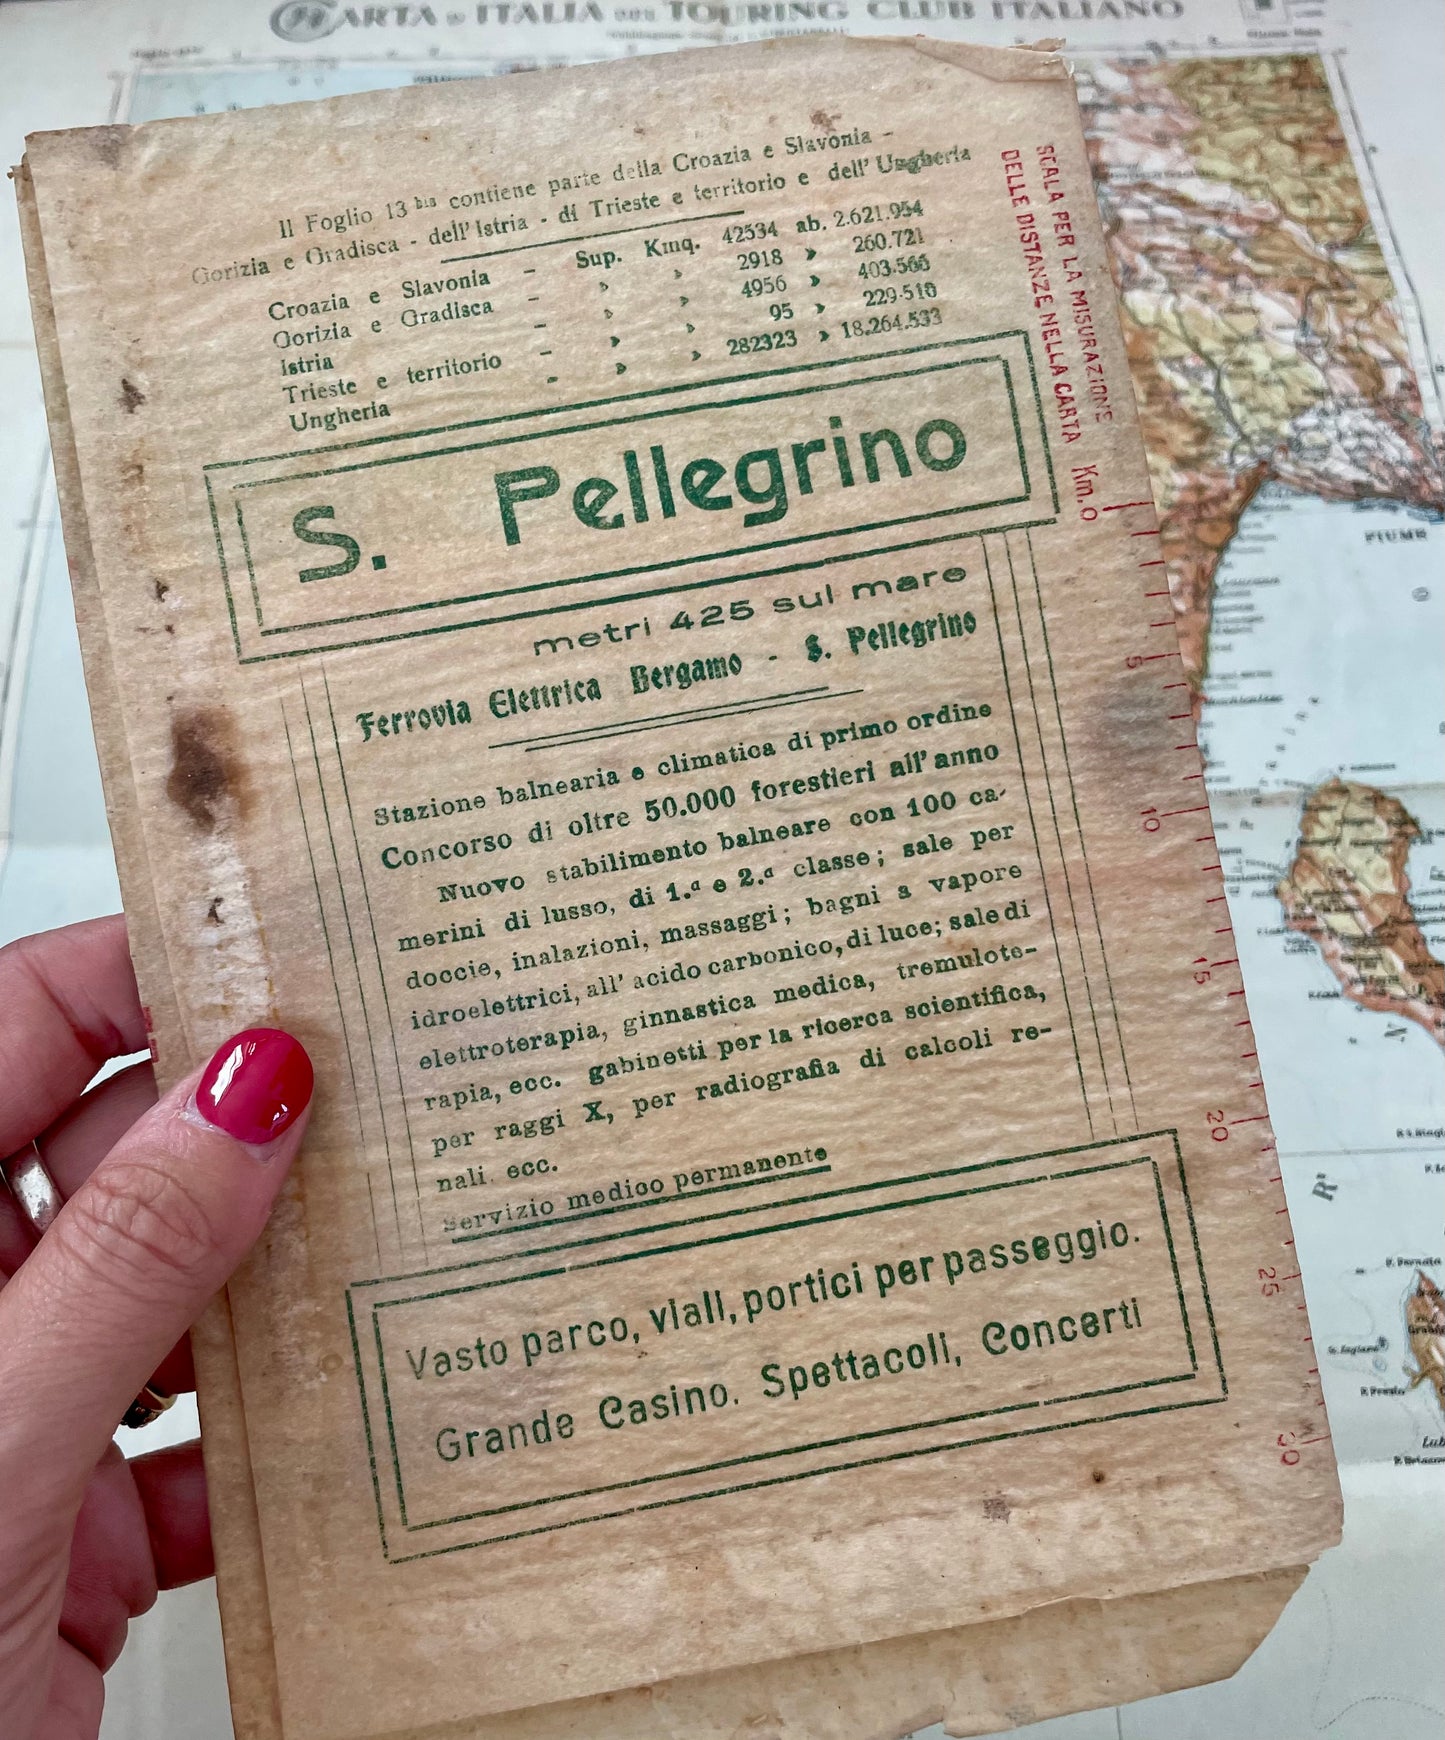 CARTA D'ITALIA DEL TOURING CLUB ITALIANO
Il Foglio 13 bis contiene parte della Croazia e Slavonia -
Gorizia e Gradisca - dell' Istria - di Trieste e territorio e dell' Ungheria
Croazia e Slavonia - Sup. Kmq. 42534 ab. 2.621.954
Gorizia e Gradisca - » » 2918 » 260.721
Istria - » » 4956 » 403.566
Trieste e territorio - » » 95 » 229.510
Ungheria - » » 282323 » 18.264.533
S. Pellegrino
metri 425 sul mare
Ferrovia Elettrica Bergamo - S. Pellegrino
Stazione balnearia e climatica di primo ordine
Concorso di oltre 50.000 forestieri all' anno
Nuovo stabilimento balneare con 100 ca-
merini di lusso, di 1.a e 2.a classe; sale per
doccie, inalazioni, massaggi; bagni a vapore
idroelettrici, all' acido carbonico, di luce; sale di
elettroterapia, ginnastica medica, tremulote-
rapia, ecc. gabinetti per la ricerca scientifica,
per raggi X, per radiografia di calcoli re-
nali. ecc.
Servizio medico permanente
Vasto parco, viali, portici per passeggio.
Grande Casino. Spettacoli, Concerti
SCALA PER LA MISURAZIONE
DELLE DISTANZE NELLA CARTA Km. 0
5
10
15
20
25
30
FIUME